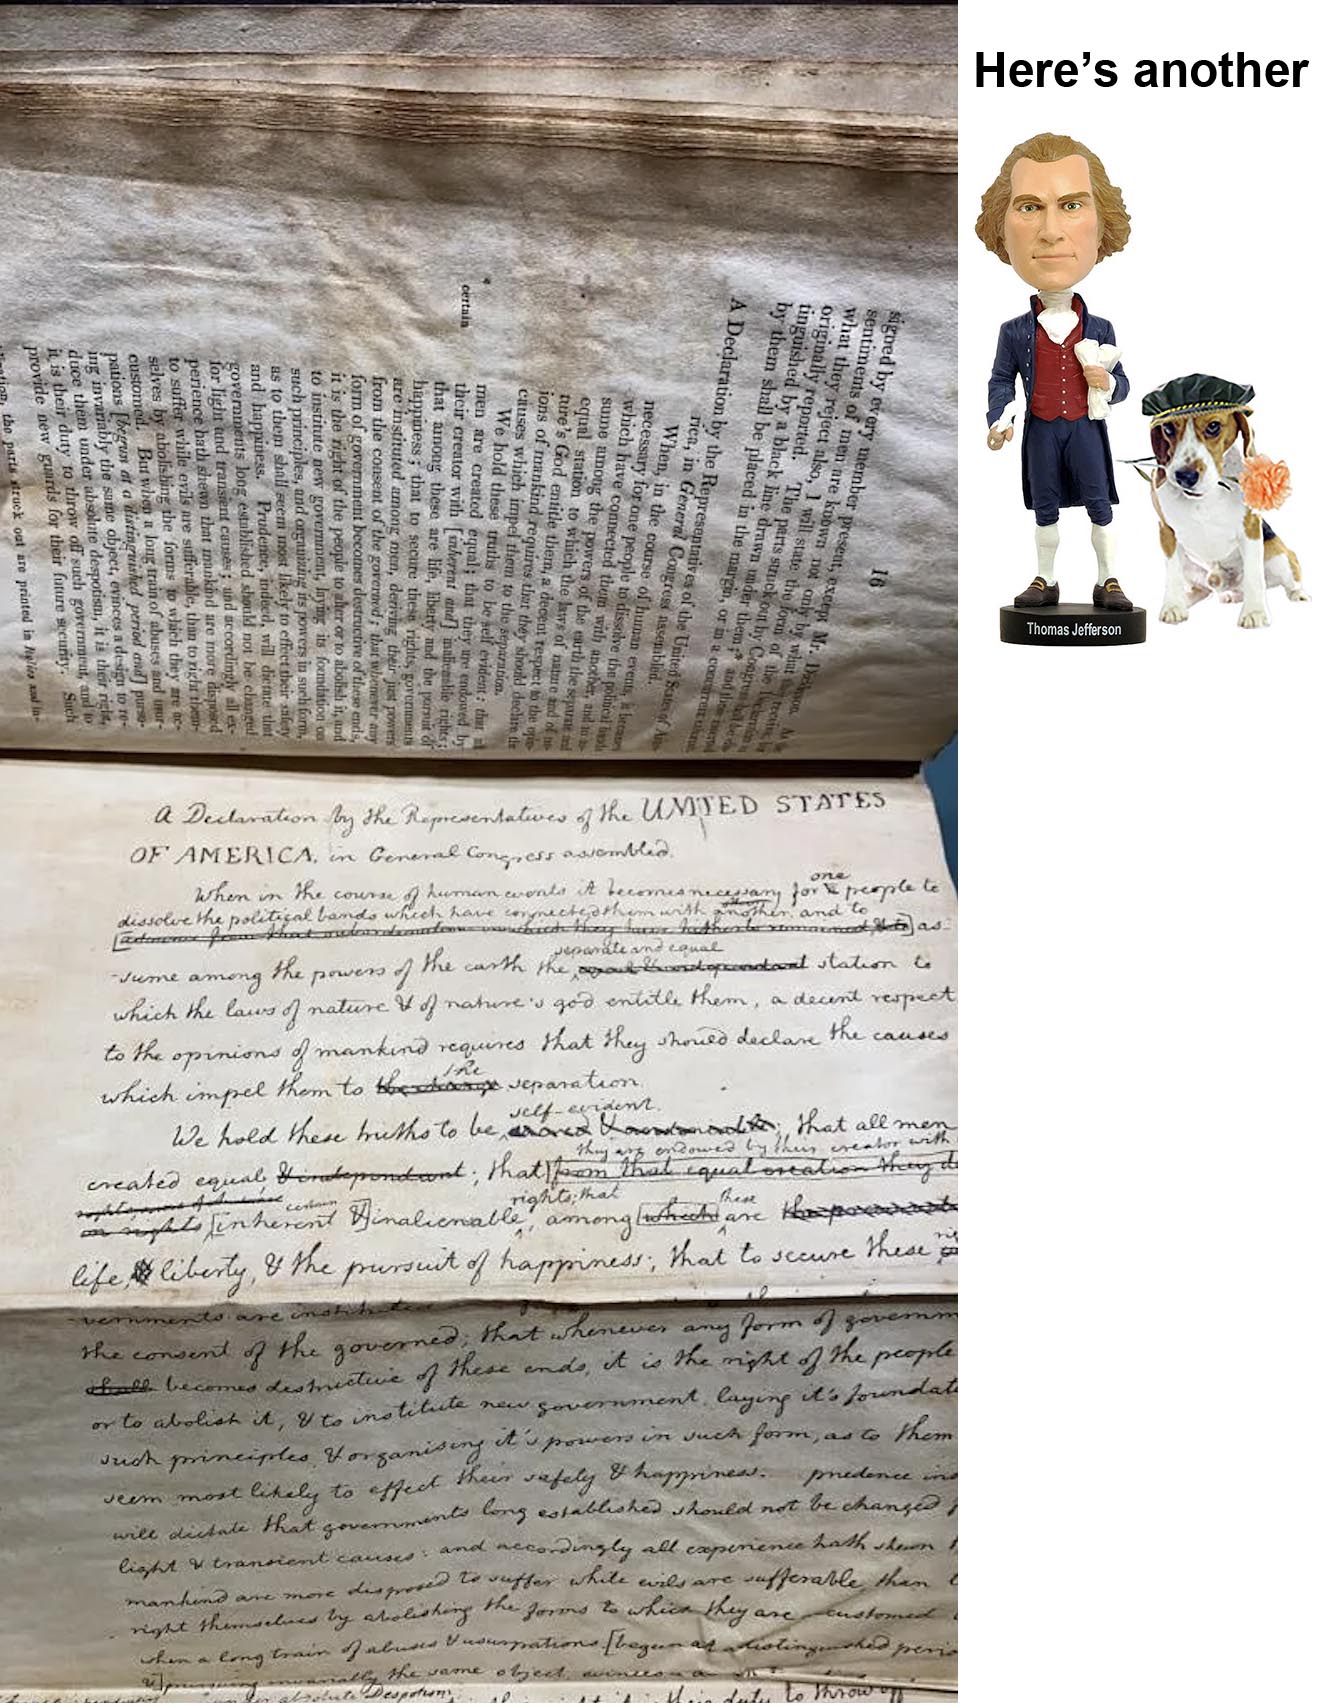 Here's another
Thomas Jefferson
16
signed by every member present, except Mr. Dickinson. As the
sentiments of men are known not only by what they receive, but
what they reject also, I will state the form of the
originally reported. The parts struck out by Congress shall be dis-
tinguished by a black line drawn under them;* and those inserted
by them shall be placed in the margin, or in a concurrent column.
A Declaration by the Representatives of the United States of Ame-
rica, in General Congress assembled.
When, in the course of human events, it becomes
necessary for one people to dissolve the political bands
which have connected them with another, and to as-
sume among the powers of the earth the separate and
equal station to which the laws of nature and of na-
ture's God entitle them, a decent respect to the opin-
ions of mankind requires that they should declare the
causes which impel them to the separation.
We hold these truths to be self evident; that all
men are created equal; that they are endowed by
their creator with [inherent and] inalienable rights;
* certain
that among these are life, liberty and the pursuit of
happiness; that to secure these rights, governments
are instituted among men, deriving their just powers
from the consent of the governed; that whenever any
form of government becomes destructive of these ends,
it is the right of the people to alter or to abolish it, and
to institute new government, laying its foundation on
such principles, and organizing its powers in such form,
as to them shall seem most likely to effect their safety
and happiness. Prudence, indeed, will dictate that
governments long established should not be changed
for light and transient causes; and accordingly all ex-
perience hath shewn that mankind are more disposed
to suffer while evils are sufferable, than to right them-
selves by abolishing the forms to which they are ac-
customed. But when a long train of abuses and usur-
pations [begun at a distinguished period and] pursu-
ing invariably the same object, evinces a design to re-
duce them under absolute despotism, it is their right,
it is their duty to throw off such government, and to
provide new guards for their future security. Such
the parts struck out are printed in Italics and in-
a Declaration by the Representatives of the UNITED STATES
OF AMERICA, in General Congress assembled.
When in the course of human events it becomes necessary for one people to
dissolve the political bands which have connected them with another, and to
[advance from that subordination in which they have hitherto remained, & to] as-
separate and equal
-sume among the powers of the earth the equal & independant station to
which the laws of nature & of nature's god entitle them, a decent respect
to the opinions of mankind requires that they should declare the causes
the
which impel them to the change separation.
self-evident.
We hold these truths to be sacred & undeniable; that all men
they are endowed by their creator with
created equal & independant; that from that equal creation they de
certain rights; that these
in rights [inherent &] inalienable, among which are the preservati
life, & liberty, & the pursuit of happiness; that to secure these
-vernments are institute
the consent of the governed; that whenever any form of governm
shall becomes destructive of these ends, it is the right of the people
or to abolish it, & to institute new government, laying it's foundati
such principles & organising it's powers in such form, as to them
seem most likely to effect their safety & happiness. prudence ind
will dictate that governments long established should not be changed f
light & transient causes: and accordingly all experience hath shewn
mankind are more disposed to suffer while evils are sufferable, than
right themselves by abolishing the forms to which they are customed
when a long train of abuses & usurpations [begun at a distinguished perio
&] pursuing invariably the same object, evinces a
absolute Despotism their duty to throw off